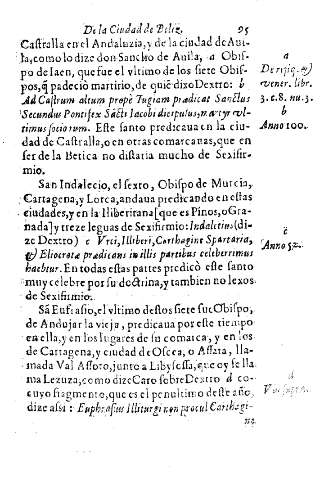 De la Ciudad de Beliz. 95
Castralla en el Andaluzia, y de la ciudad de Aui-
la, como lo dize don Sancho de Auila, a Obis-
po de Iaen, que fue el vltimo de los siete Obis-
pos, q̃ padeciò martirio, de quiẽ dixo Dextro: b
Ad Castrum altum propè Tugiam prædicat Sanctus
Secundus Pontifex Sācti Iacobi discipulus, martyr vl-
timus sociorum. Este santo predicaua en la ciu-
dad de Castralla, o en otras comarcanas, que en
ser de la Betica no distaria mucho de Sexifir-
mio.
San Indalecio, el sexto, Obispo de Murcia,
Cartagena, y Lorca, andaua predicando en estas
ciudades, y en la Iliberirana [que es Pinos, o Gra-
nada] y treze leguas de Sexifirmio: Indaletius (di-
ze Dextro) c Vrci, Illiberi, Carthagine Spartaria,
& Eliocrata prædicans in illis partibus celeberrimus
habetur. En todas estas partes predicò este santo
muy celebre por su doctrina, y tambien no lexos
de Sexifirmio.
Sā Eufrasio, el vltimo destos siete fue Obispo,
de Andujar la vieja, predicaua por este tiempo
en ella, y en los lugares de su comarca, y en los
de Cartagena, y ciudad de Osca, o Assara, lla-
mada Val Assoto, junto a Libysessa, que oy se lla
ma Lezuza, como dize Caro sobre Dextro d co-
cuyo fragmento, que es el penultimo deste año,
dize assi: Euphrasius Illiturgi non procul Carthagi-
ne
a
vener. libr.
3. c. 8. nu. 3.
b
Anno 100.
c
Anno 52.
d